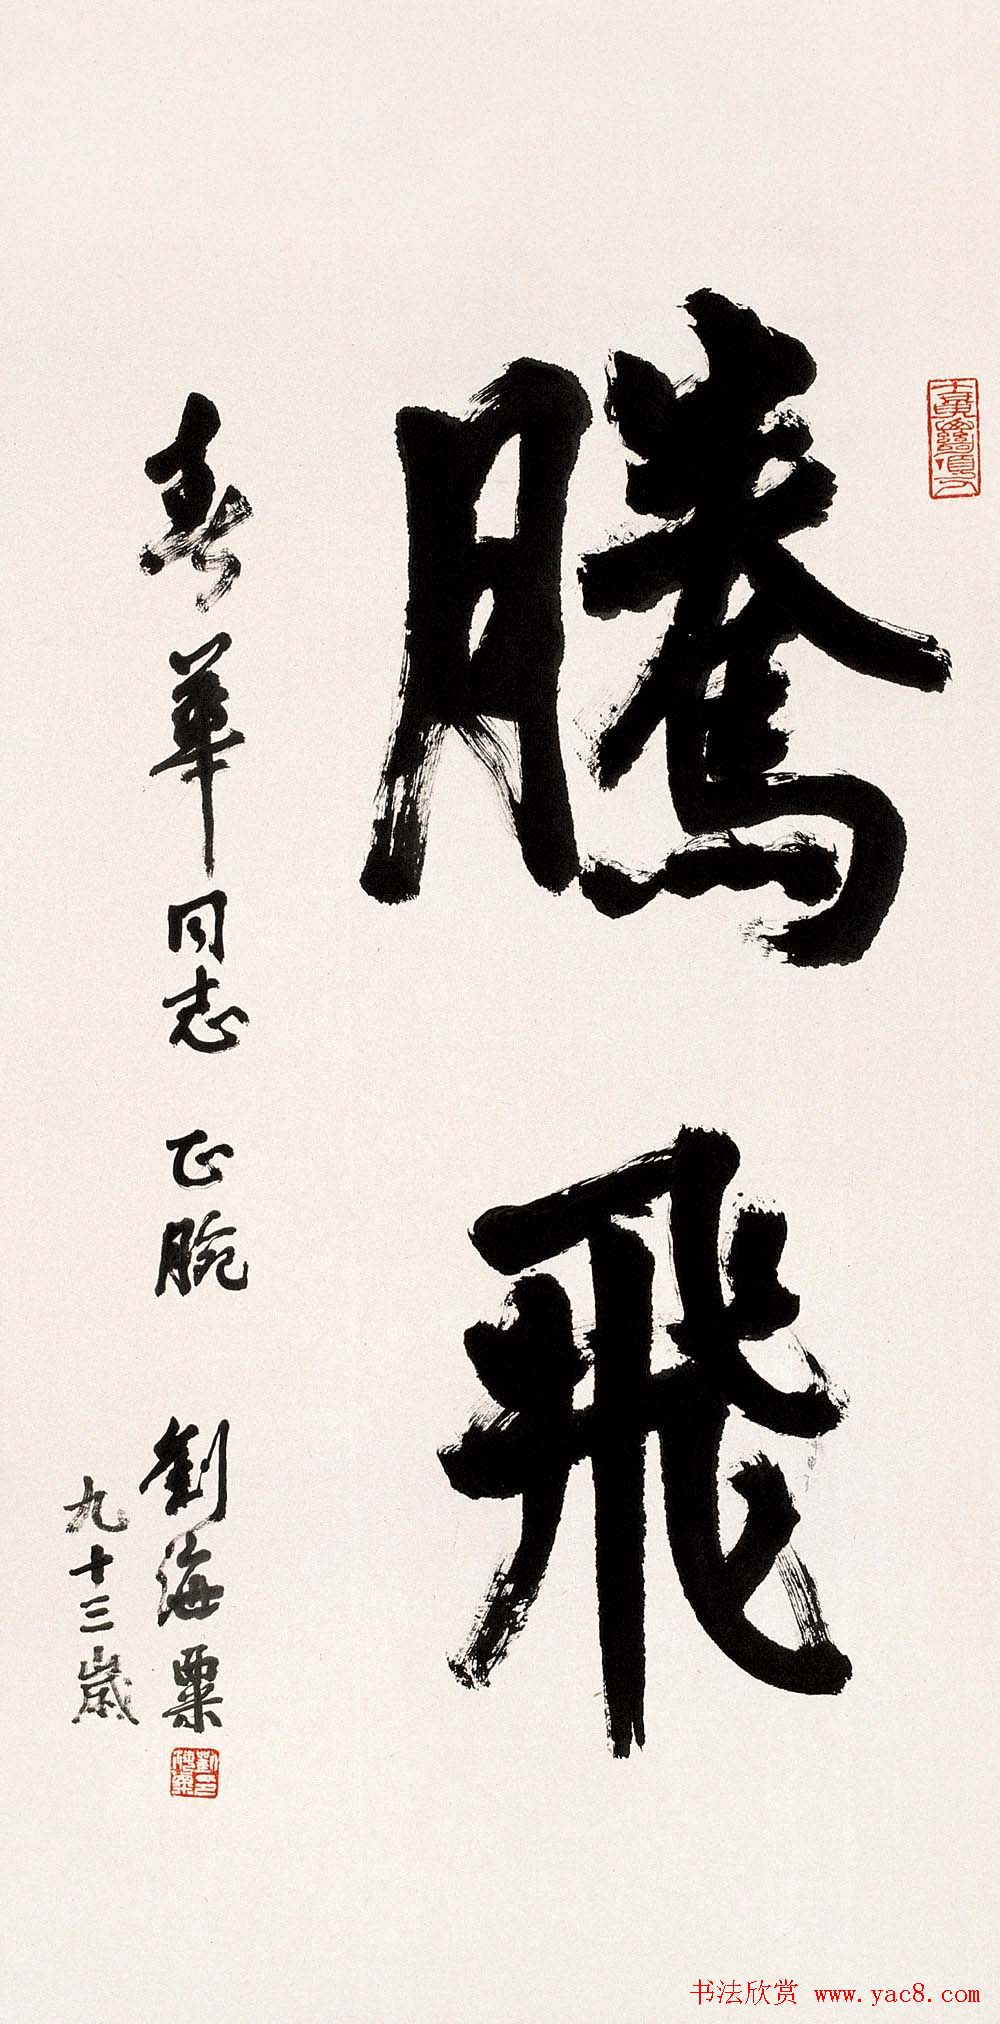 騰飛
春華同志 正腕
劉海粟
九十三歲
书法欣赏 www.yac8.com